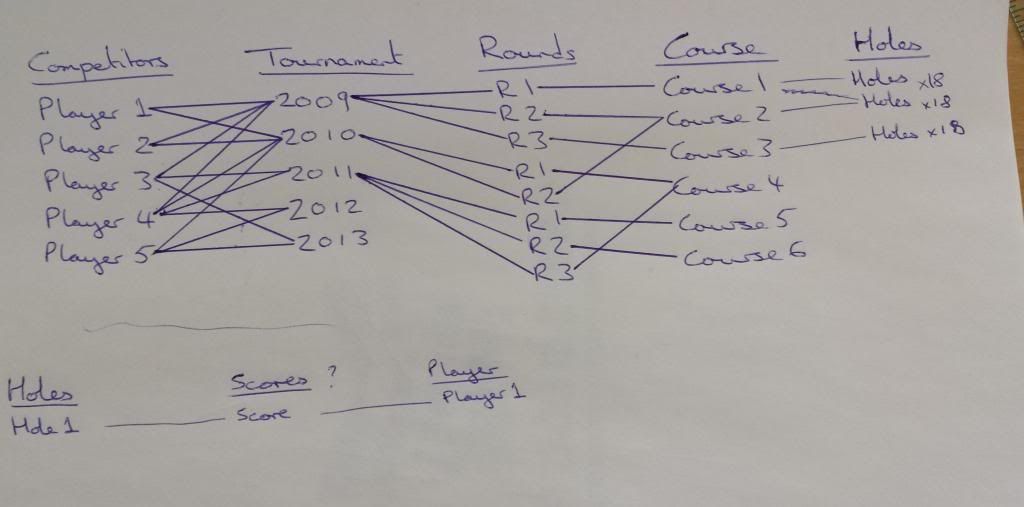 Competitors Tournament Rounds Course Holes
Player 1 2009 R1 Course 1 Holes x18
Player 2 2010 R2 Course 2 Holes x18
Player 3 2011 R3 Course 3 Holes x18
Player 4 2012 R1 Course 4
Player 5 2013 R2 Course 5
R1 Course 6
R2
R3
Holes Scores ? Player
Hole 1 Score Player 1